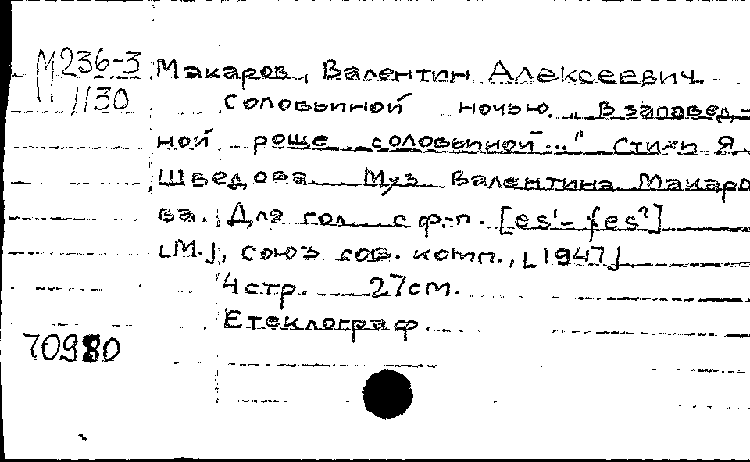 М236-3 Макаров, Валентин Алексеевич.
1130 Соловьиной ночью. „В заповед-
ной роще соловьиной..." Стихи Я.
Шведова. Муз. Валентина Макаро
ва. Для гол. с ф.-п. [es¹-fes²]
[М.], Союз сов. комп., [1947]
4 стр. 27 см.
Стеклограф.
70980